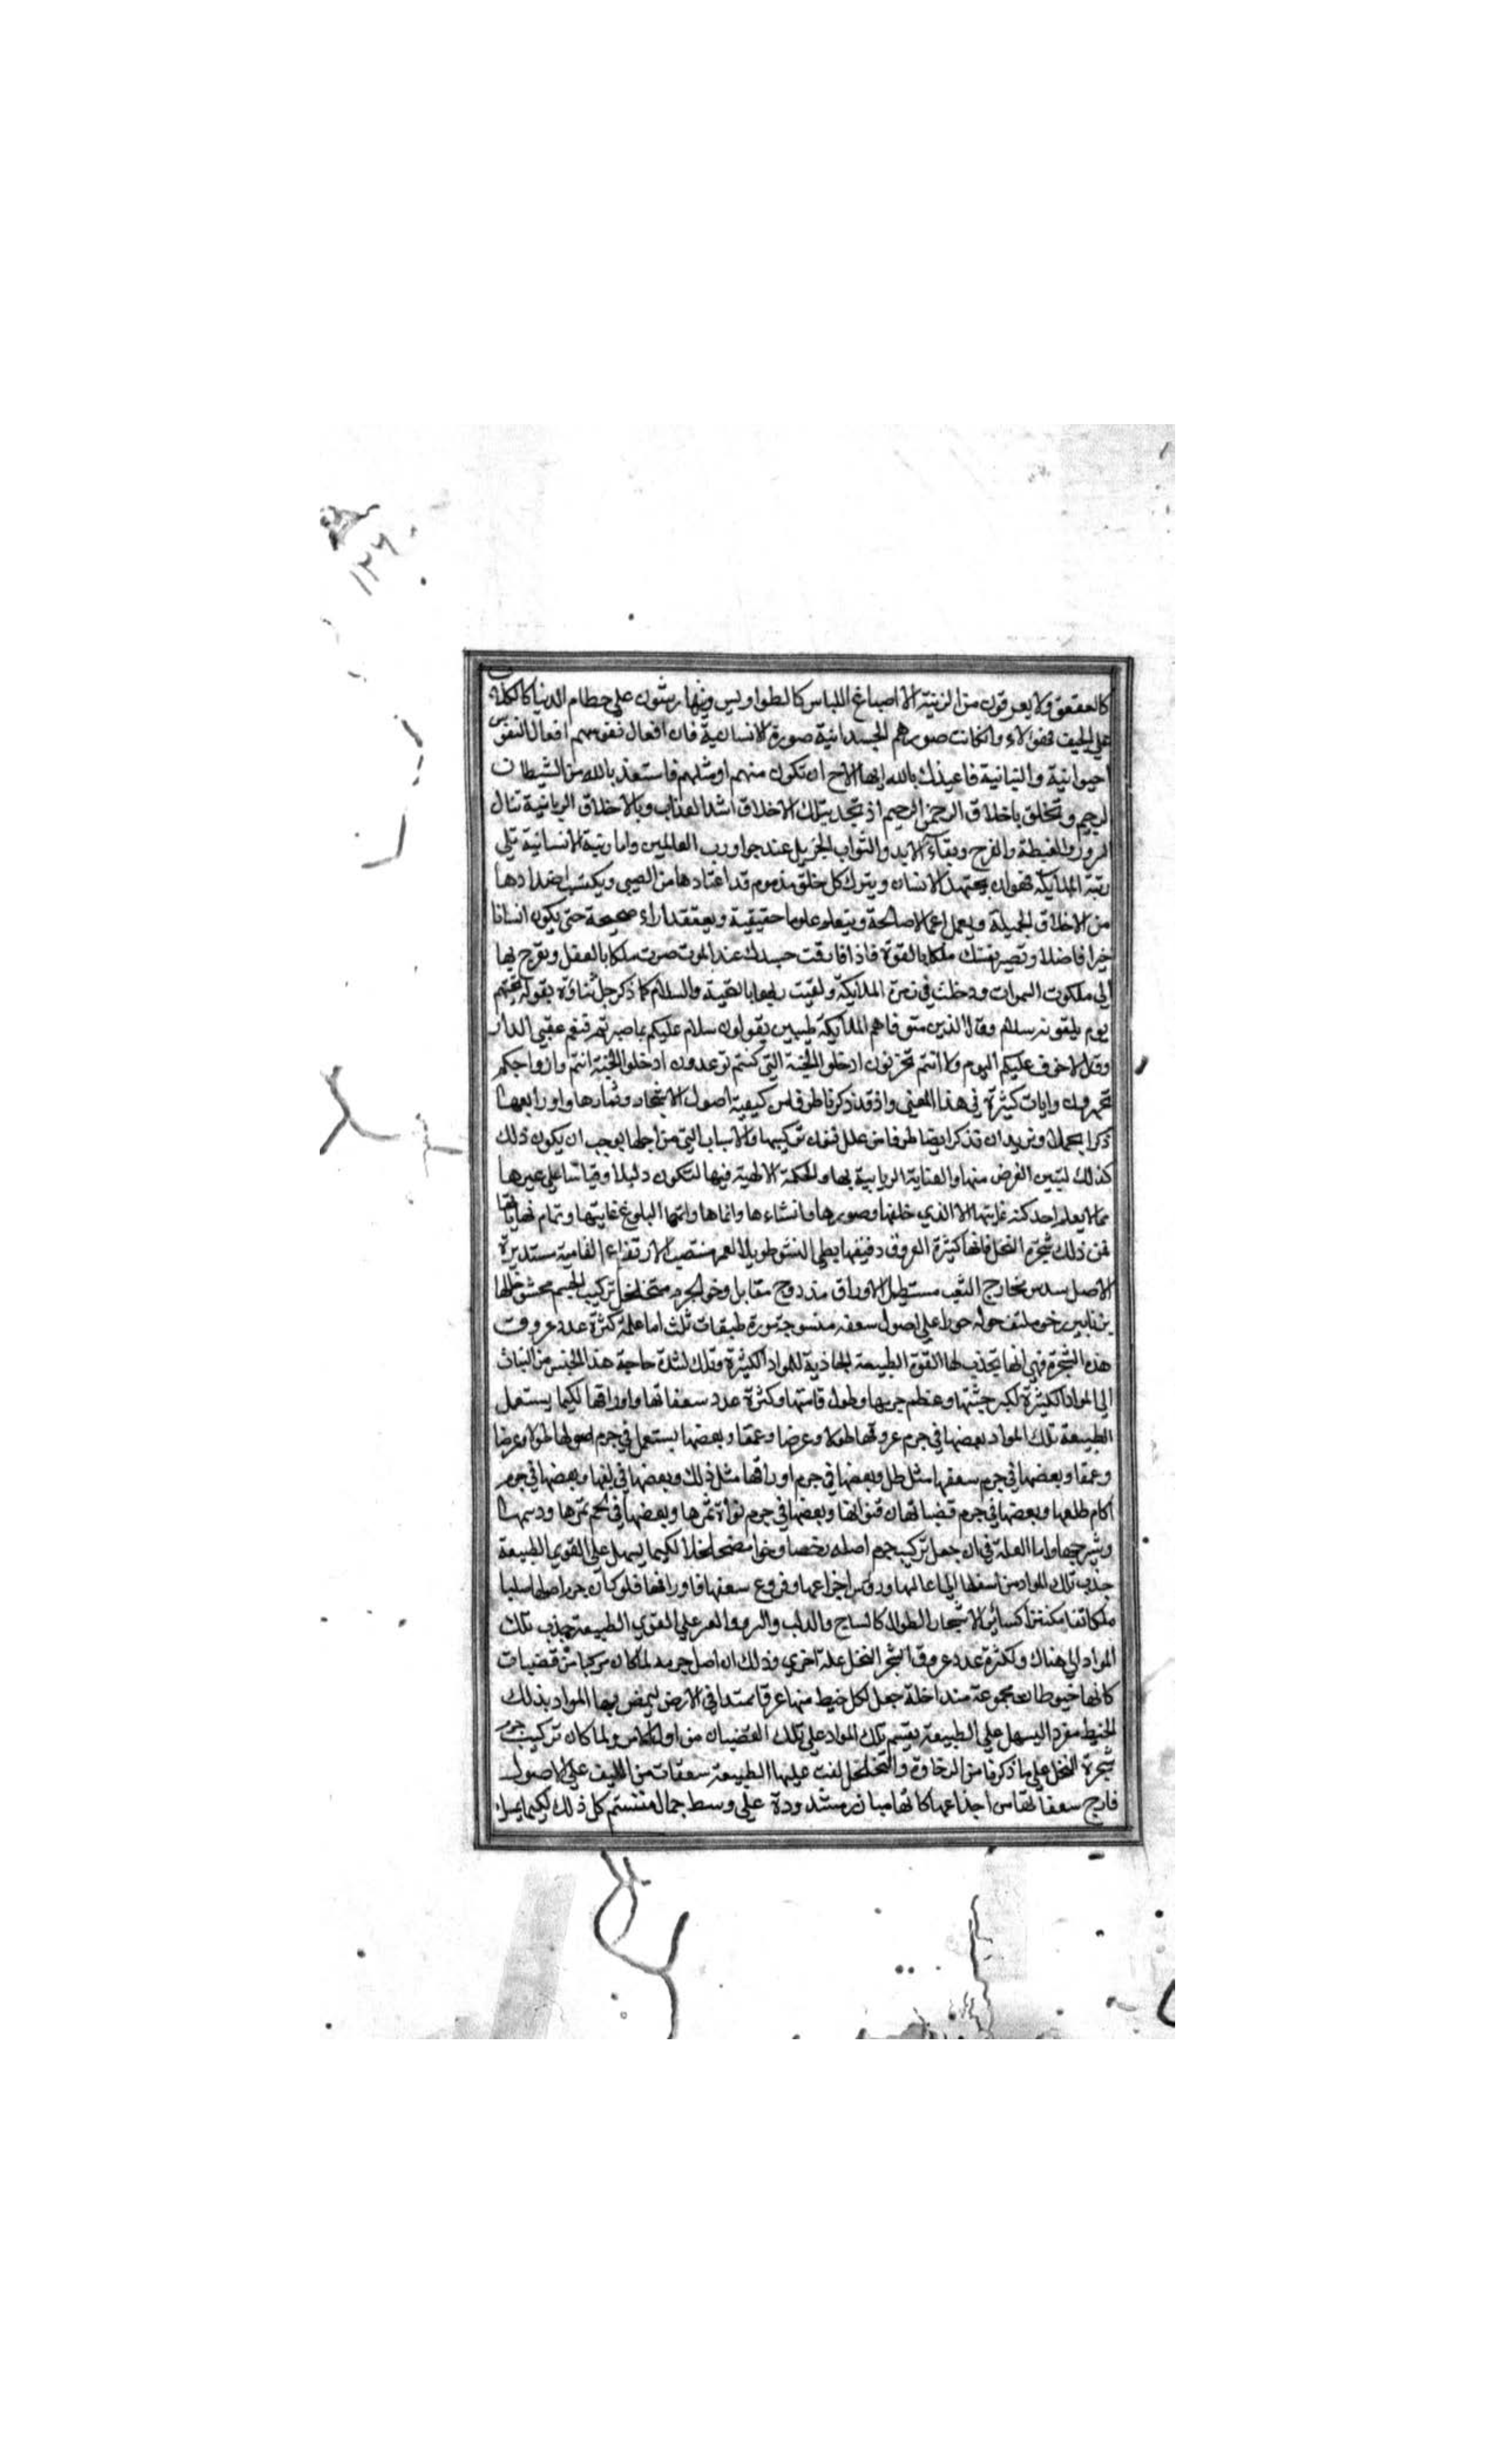 ١٢٦
كالعقعق ولا يعرفون من الزينة الا اصباغ اللباس كالطواويس وتهارشون على حطام الدنيا كالكلاب
على الجيف فهؤلاء وان كانت صورهم الجسدانية صورة الانسانية فان افعال نفوسهم افعال النفوس
الحيوانية والنباتية فاعيذك بالله ايها الاخ ان تكون منهم او مثلهم فاستعذ بالله من الشيطان
الرجيم وتخلق باخلاق الرحمن الرحيم اذ تجد بتلك الاخلاق اشد العذاب وبالاخلاق الربانية تنال
السرور والغبطة والفرح وبقاء الابد والثواب الجزيل عند جوار رب العالمين واما رتبة الانسانية تلي
رتبة الملايكة فهو ان يجتهد الانسان ويترك كل خلق مذموم قد اعتادها من الصبي ويكتسب اضدادها
من الاخلاق الجميلة ويعمل اعمالا صالحة ويتعلم علوما حقيقية ويعتقد اراء صحيحة حتى يكون انسانا
خيرا فاضلا وتصير نفسك ملكا بالقوة فاذا فارقت جسدك عند الموت صرت ملكا بالفعل وتعرج بها
الى ملكوت السموات ودخلت في زمرة الملايكة ولقيت ربها بالتحية والسلام كما ذكر جل ثناؤه بقوله تحيتهم
يوم يلقونه سلام وقال الذين تتوفاهم الملايكة طيبين يقولون سلام عليكم بما صبرتم فنعم عقبى الدار
وقال لا خوف عليكم اليوم ولا انتم تحزنون ادخلوا الجنة التي كنتم توعدون ادخلوا الجنة انتم وازواجكم
تحبرون وايات كثيرة في هذا المعنى واذ قد ذكرنا طرفا من كيفية اصول الاشجار وثمارها واوراقها
ذكرا مجملا ونريد ان نذكر ايضا طرفا من علل فنون تركيبها والاسباب التي من اجلها يوجب ان يكون ذلك
كذلك ليتبين الغرض منها والعناية الربانية بها والحكمة الالهية فيها لتكون دليلا وقياسا على غيرها
مما لا يعلم احد كنه غايتها الا الذي خلقها وصورها وانشاءها وانماها واتمها البلوغ غايتها وتمام نهاياتها
فمن ذلك شجرة النخل فانها كثيرة العروق دقيقها بطي النشو طويل العمر منتصب الارتفاع القامة مستديرة
الاصل سدس مخارج السعف مستطيل الاوراق مزدوج مقابل رخو الجرم متخلخل تركيب الجسم محشو خللها
زنابير رخو ملتف حوله حول على اصول سعفه منسوجة طبقات ثلث اما علة كثرة عدد عروق
هذه الشجرة فهي انها تجذب لها القوة الطبيعة الجاذبة للمواد الكثيرة وذلك لشدة حاجة هذا الجنس من النبات
الى المواد الكثيرة لكبر جثتها وعظم جرمها وطول قامتها وكثرة عدد سعفاتها واوراقها لكيما يستعمل
الطبيعة تلك المواد بعضها في جرم عروقها طولا وعرضا وعمقا وبعضها يستعمل في جرم اصولها طولا وعرضا
وعمقا وبعضها في جرم سعفها مثل طل وبعضها في جرم اوراقها مثل ذلك وبعضها في ليفها وبعضها في جرم
اكام طلعها وبعضها في جرم قضبانها قنوانها وبعضها في جرم نواة تمرها وبعضها في لحم تمرها ودسمها
وشيرجها واما العلة في ان جعل تركيب جرم اصله رخوا متخلخلا لكيما يسهل على القوى الطبيعة
جذب تلك المواد من اسفلها الى اعاليها ورؤس اجذاعها وفروع سعفها واوراقها فلو كان جرم اصولها صلبا
متكاثفا مكتنزا كسائر الاشجار الطوال كالساج والدلب والسرو والعرعر على القوى الطبيعة جذب تلك
المواد الى هناك ولكثرة عدد عروق شجر النخل علة اخرى وذلك ان اصل جرمه لما كان مركبا من قضبات
كانها خيوطات مجموعة متداخلة جعل لكل خيط منها عرقا ممتدا في الارض ليمص بها المواد بذلك
الخيط مفردا ليسهل على الطبيعة يقسم تلك المواد على تلك القضبان من اول الاساس ولما كان تركيب جرم
شجرة النخل على ما ذكرنا من الرخاوة والتخلخل لفت عليها الطبيعة سعفات من الليف على الاصول
خارج سعفاتها من اجذاعها كانها مبازر مشدودة على وسط جمال كل ذلك لكيما